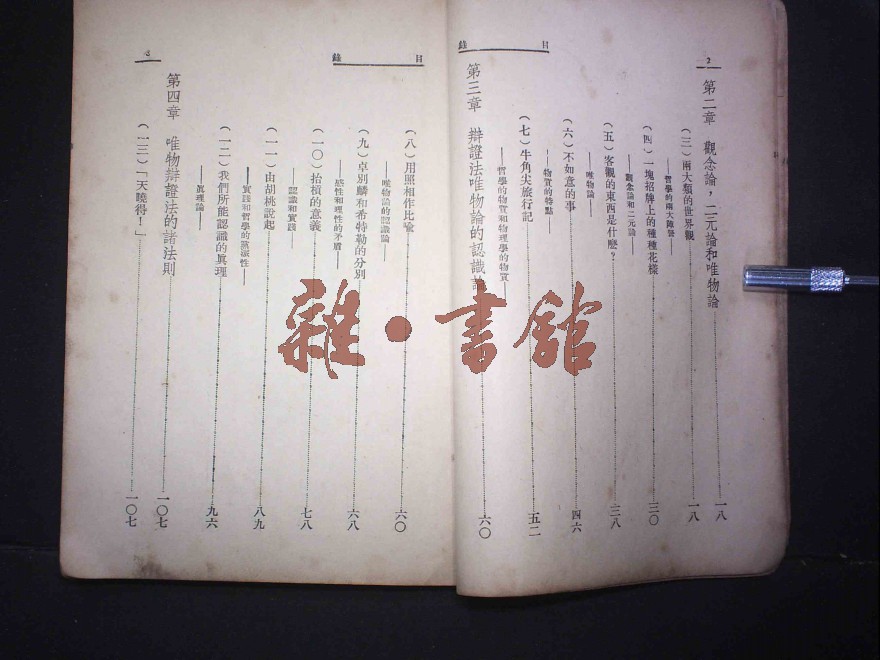 2
目錄
第二章 觀念論，二元論和唯物論……一八
（三）兩大類的世界觀……一八
——哲學的兩大陣營——
（四）一塊招牌上的種種花樣……三〇
——觀念論和二元論——
（五）客觀的東西是什麼？……三八
——唯物論——
（六）不如意的事……四六
——物質的特點——
（七）牛角尖旅行記……五二
——哲學的物質和物理學的物質——
第三章 辯證法唯物論的認識論……六〇
目錄
（八）用照相作比喻……六〇
——唯物論的認識論——
（九）卓別麟和希特勒的分別……六八
——感性和理性的矛盾——
（一〇）抬槓的意義……七八
——認識和實踐——
（一一）由胡桃說起……八九
——實踐和哲學的黨派性——
（一二）我們所能認識的眞理……九六
——眞理論——
第四章 唯物辯證法的諸法則……一〇七
（一三）「天曉得！」……一〇七
雜·書館